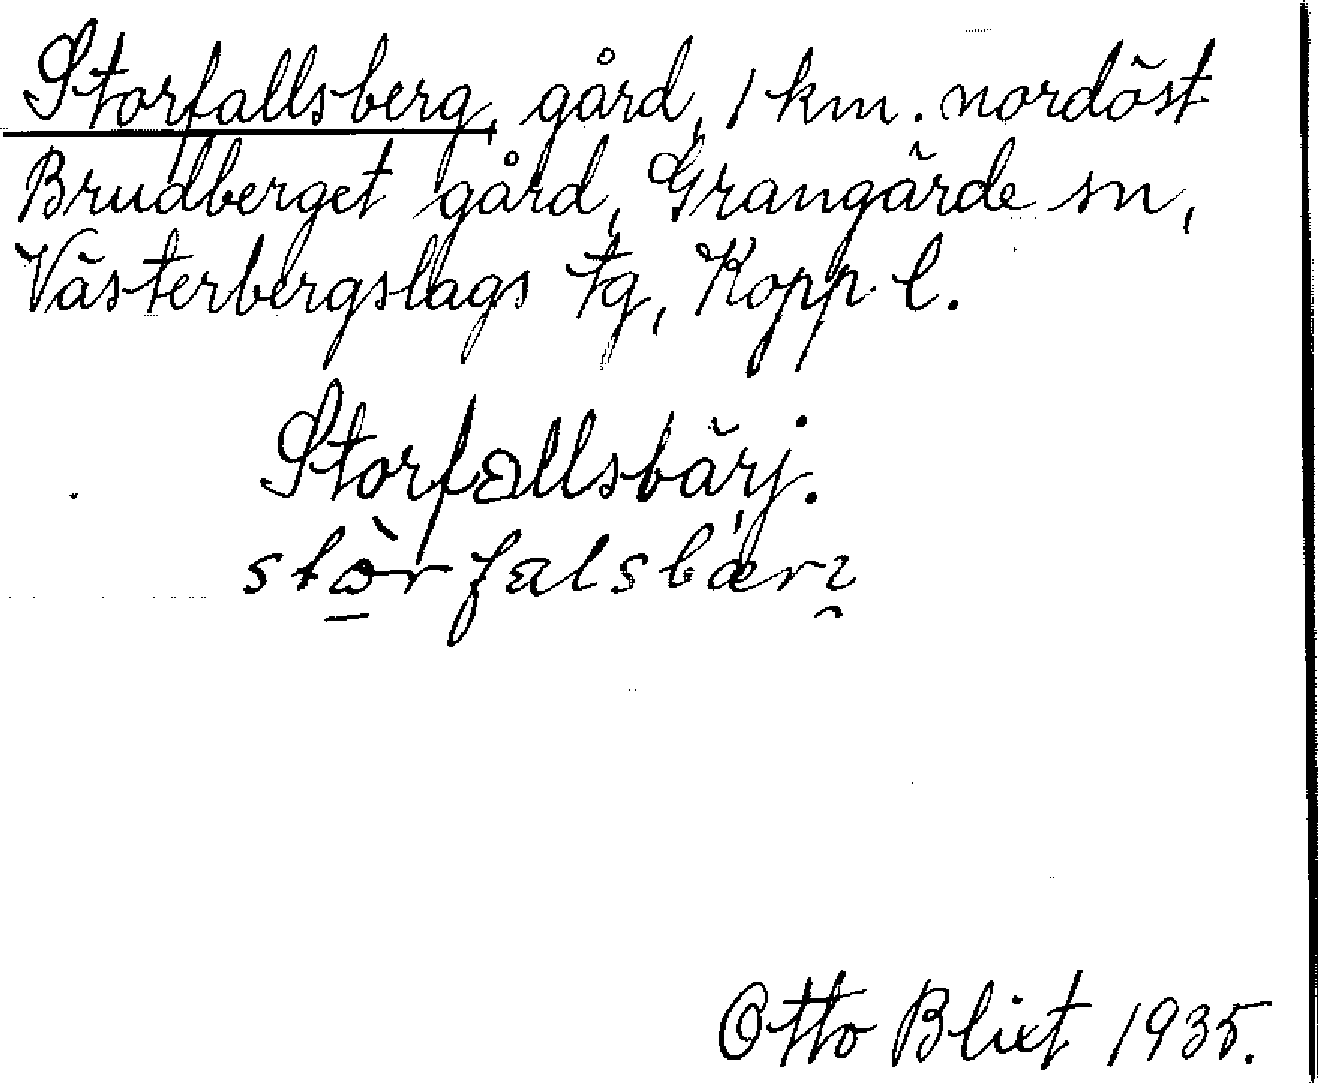 Storfallsberg, gård, 1 km. nordöst
Brudberget gård, Grangärde sn,
Västerbergslags tg, Kopp. l.
Storfallsbärj.
Otto Blixt 1935.